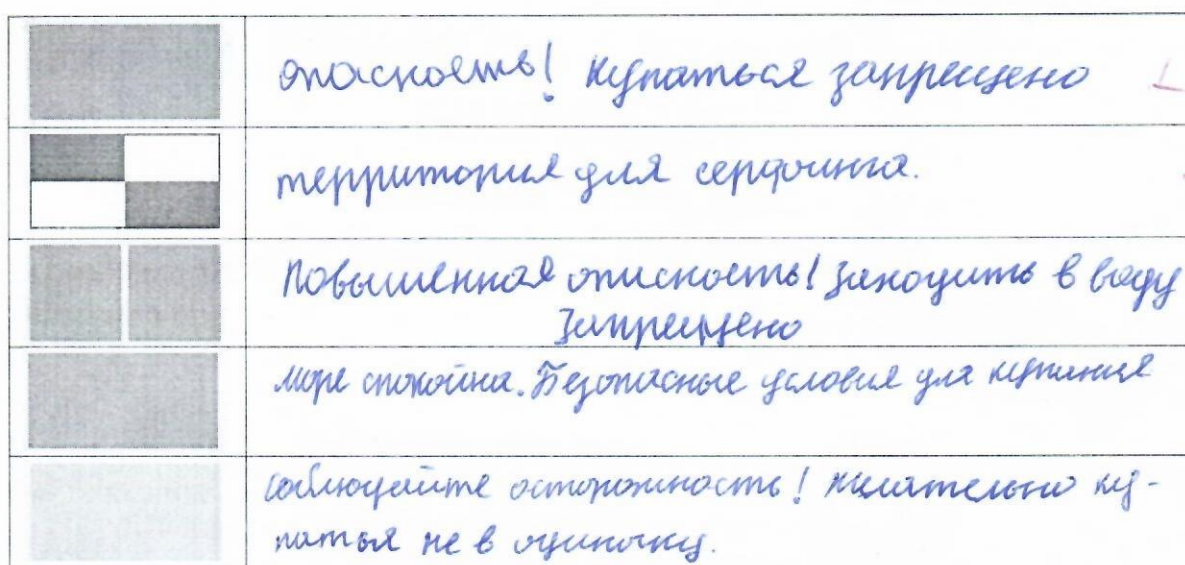 опасность! Купаться запрещено
территория для серфинга.
Повышенная описность! Заходить в воду
Запрещено
море спокойна. Безопасные условия для купания
соблюдайте осторожность! желательно ку-
паться не в одиночку.